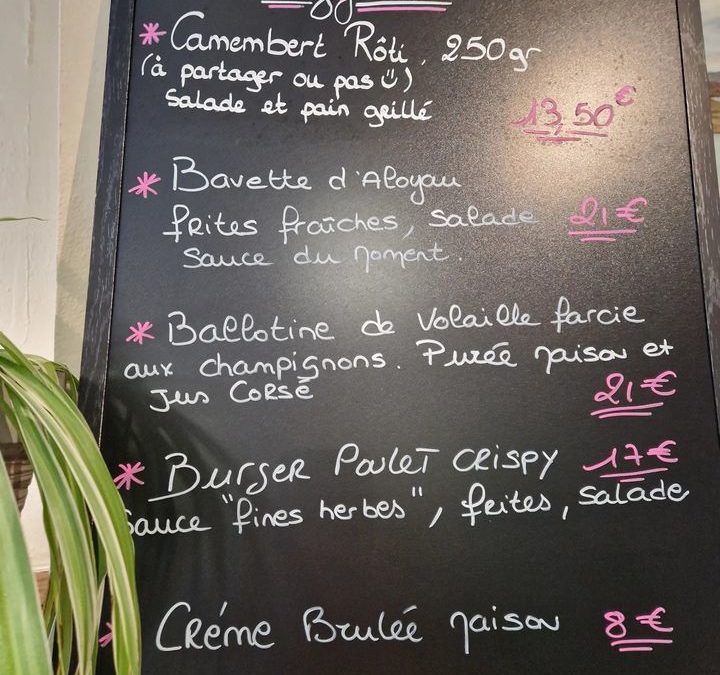 * Camembert Rôti, 250gr
(à partager ou pas)
Salade et pain grillé
13,50€
* Bavette d'Aloyau
frites fraîches, salade 21€
sauce du moment.
* Ballotine de Volaille farcie
aux champignons. Purée maison et
Jus Corsé
21€
* Burger Poulet CRISPY 17€
sauce "fines herbes", frites, salade
* Créme Brulée maison 8€